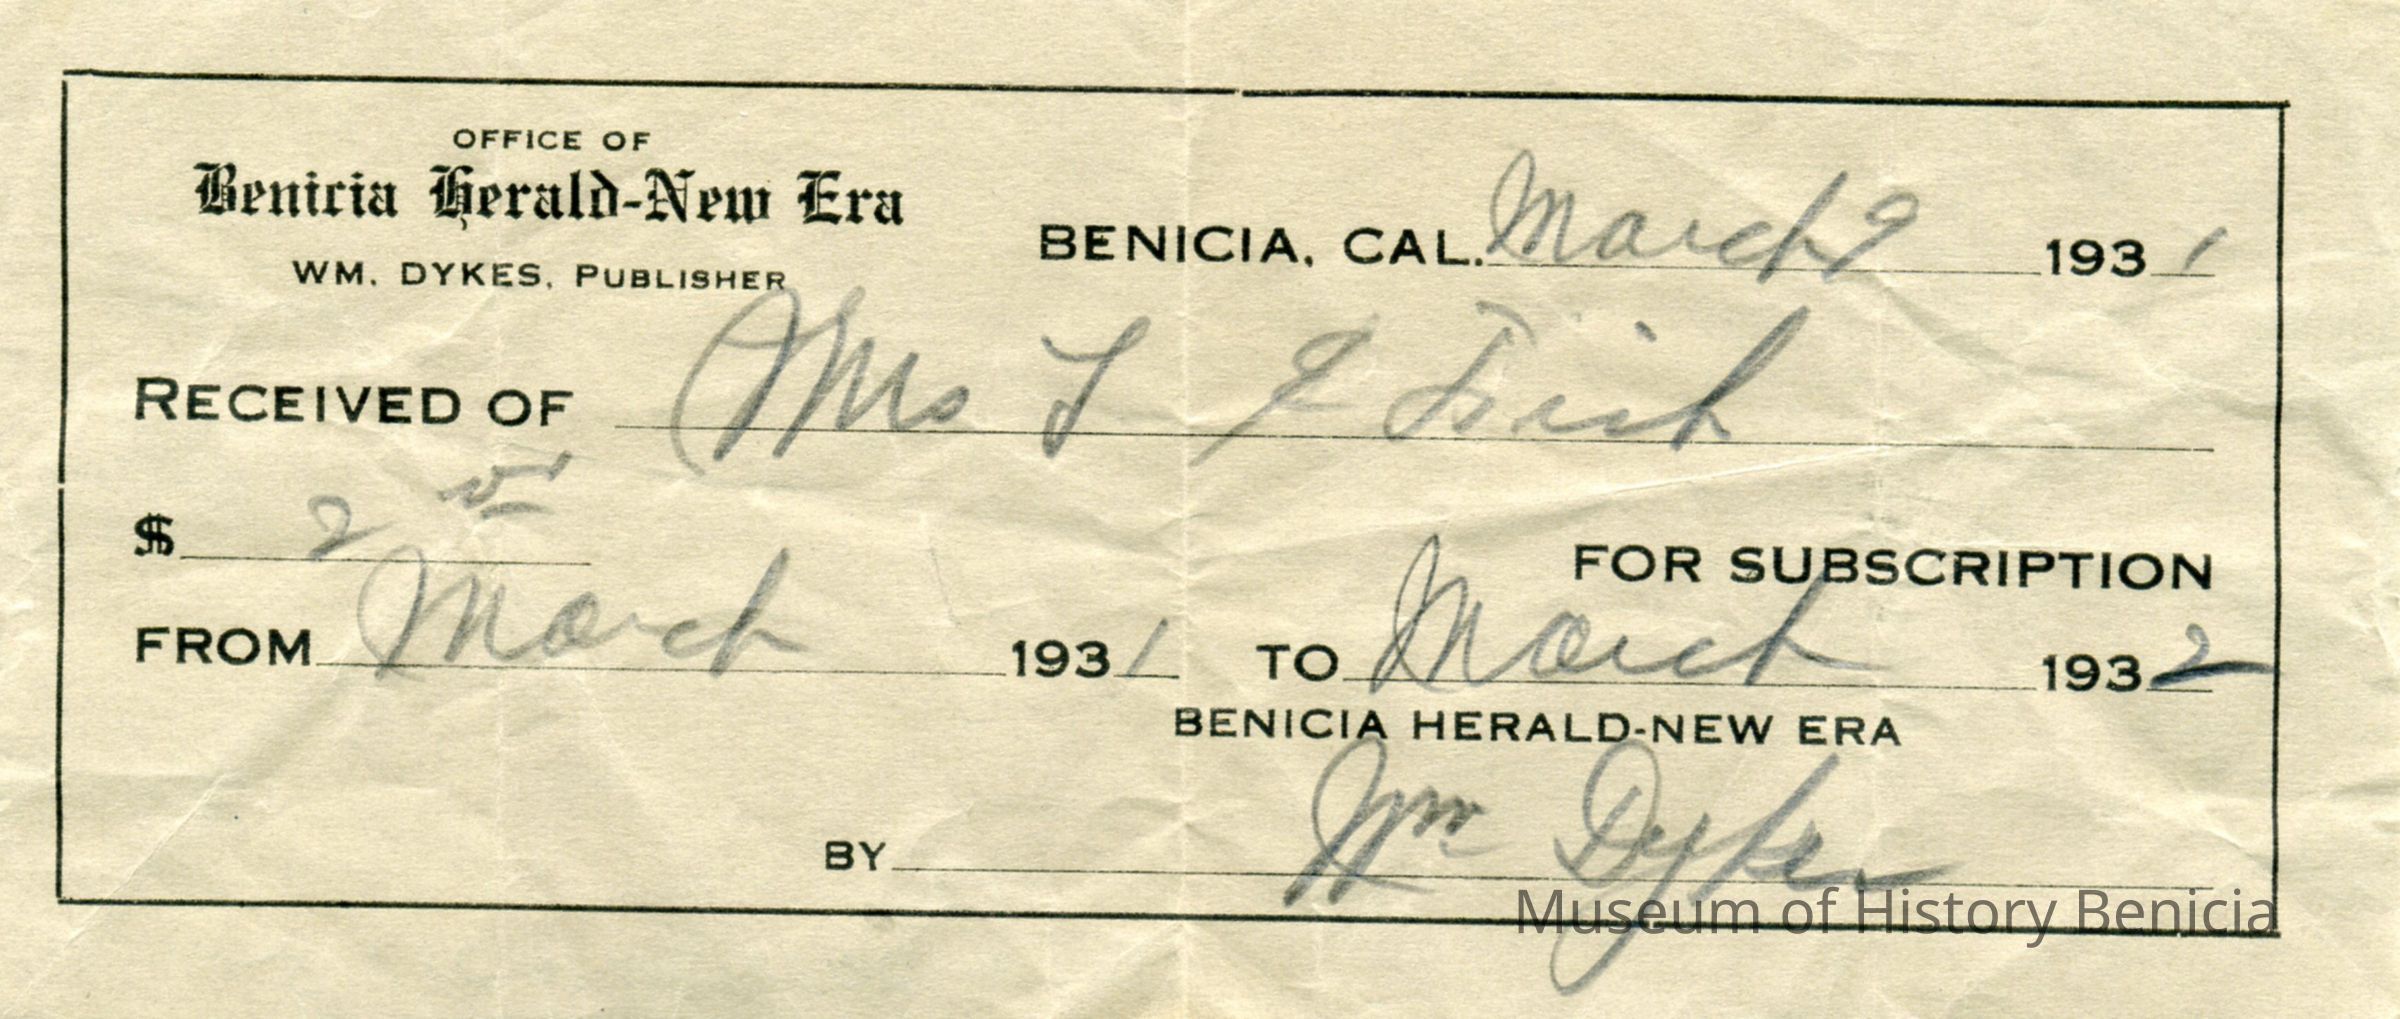 OFFICE OF
Benicia Herald-New Era
WM. DYKES, PUBLISHER
BENICIA, CAL. March 9 1931
RECEIVED OF Mrs Fish
$ 2
FOR SUBSCRIPTION
FROM March 1931 TO March 1932
BENICIA HERALD-NEW ERA
BY Wm Dykes
Museum of History Benicia